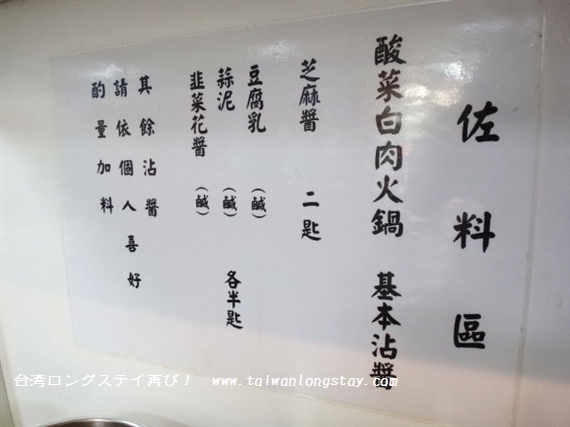 佐料區
酸菜白肉火鍋 基本沾醬
芝麻醬 二匙
豆腐乳 (鹹)
蒜泥 (鹹) 各半匙
韭菜花醬 (鹹)
其餘沾醬
請依個人喜好
酌量加料
台湾ロングステイ再び! www.taiwanlongstay.com